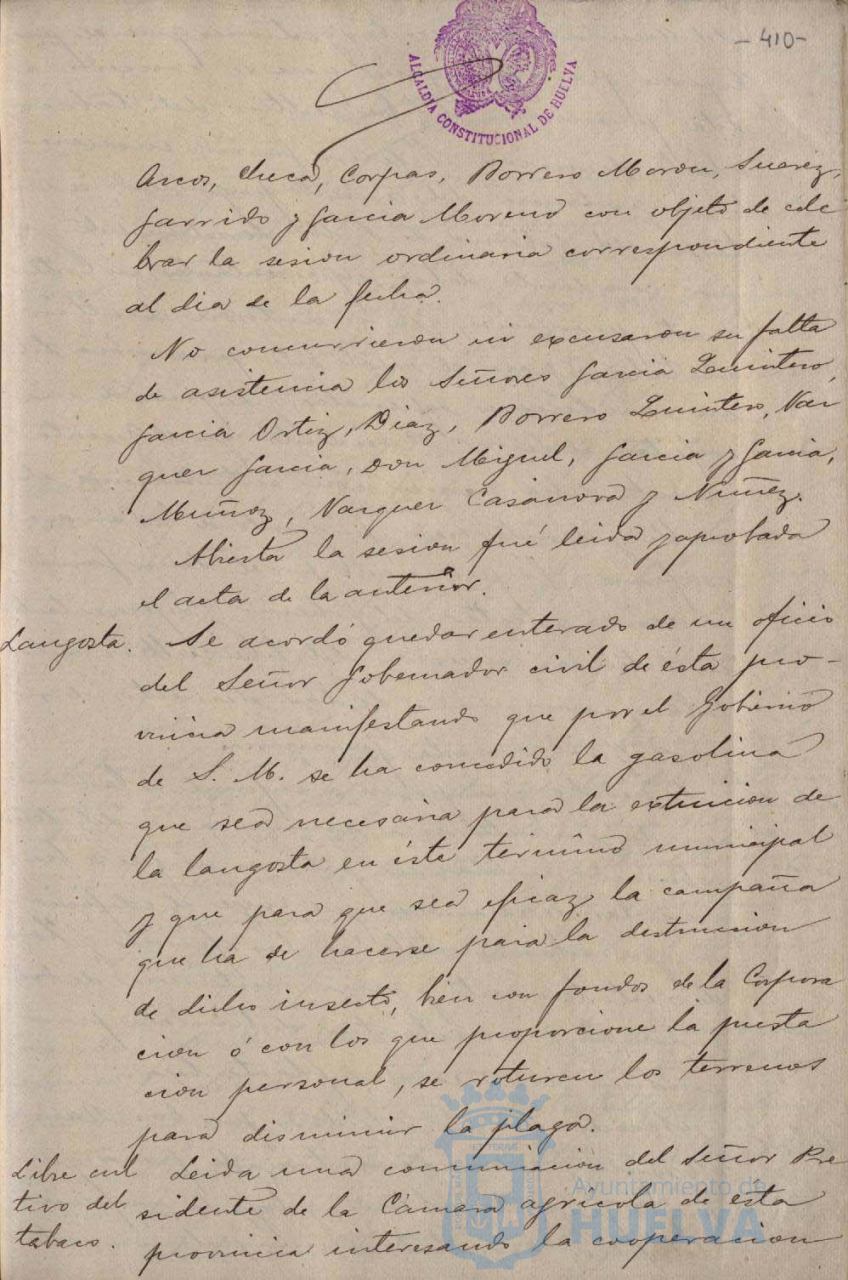 -410-
ALCALDIA CONSTITUCIONAL DE HUELVA
Arcos, Checa, Corpas, Borrero Moron, Suarez,
Garrido y Garcia Moreno con objeto de cele
brar la sesion ordinaria correspondiente
al dia de la fecha.
No concurrieron ni excusaron su falta
de asistencia los Señores Garcia Quintero,
Garcia Ortiz, Diaz, Borrero Quintero, Vaz
quez Garcia, Don Miguel, Garcia y Garcia,
Muñoz, Vazquez Casanova y Nuñez.
Abierta la sesion fué leida y aprobada
el acta de la anterior.
Langosta. Se acordó quedar enterado de un oficio
del Señor Gobernador civil de ésta pro-
vincia manifestando que por el Gobierno
de S. M. se ha concedido la gasolina
que sea necesaria para la extincion de
la langosta en éste termino municipal
y que para que sea eficaz la campaña
que ha de hacerse para la destruccion
de dicho insecto, bien con fondos de la Corpora
cion ó con los que proporcione la presta
cion personal, se roturen los terrenos
para disminuir la plaga.
Libre cul
tivo del
tabaco.
Leida una comunicacion del Señor Pre
sidente de la Cámara agrícola de esta
provincia interesando la cooperacion
Ayuntamiento de
HUELVA